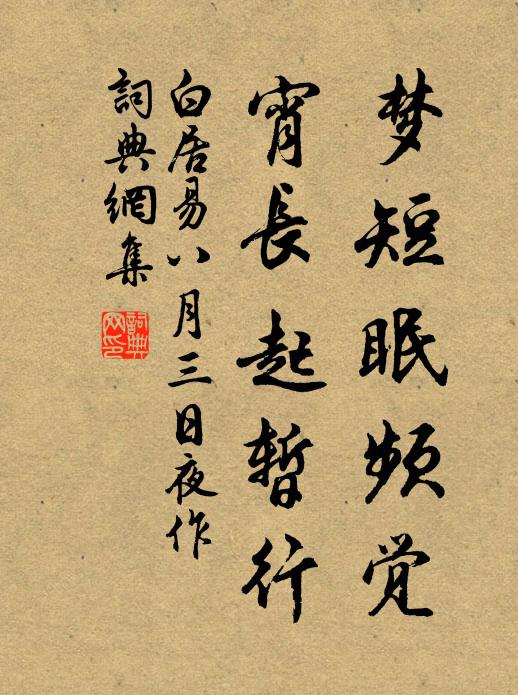 梦短眠频觉
宵長起暫行
白居易八月三日夜作
詞典網集
詞典网印